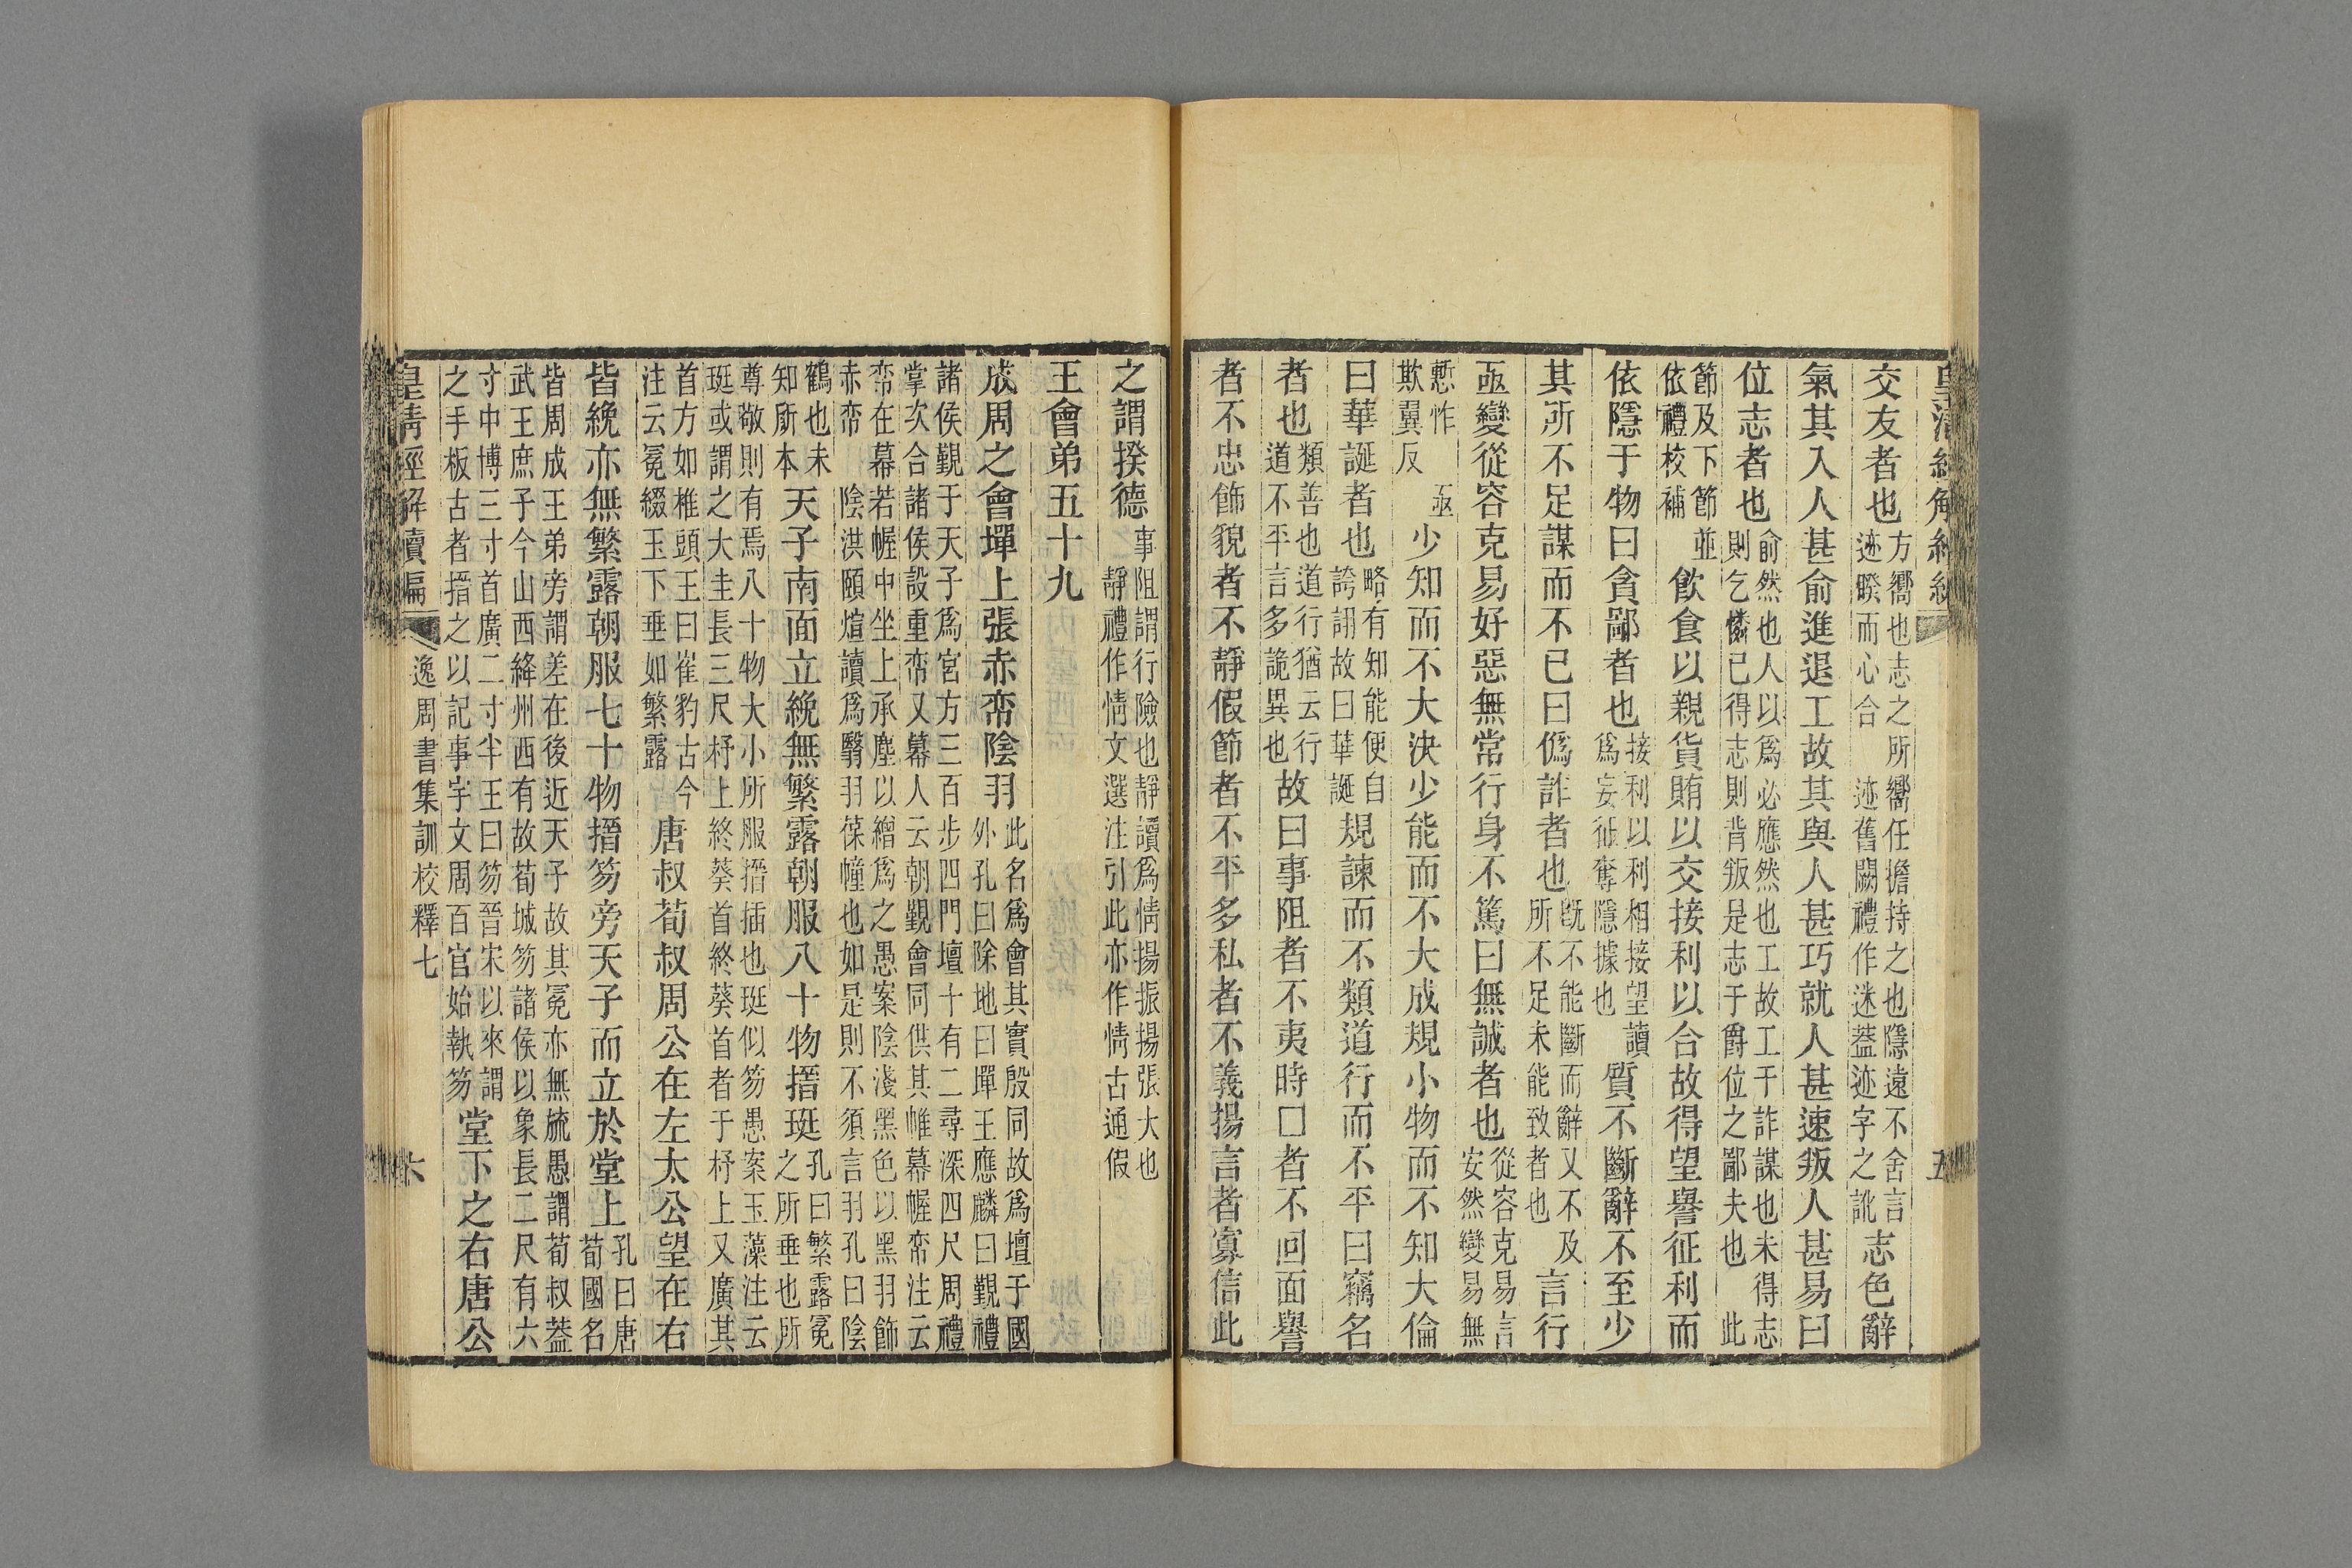 交友者也方嚮也志之所嚮任擔持之也隱遠不舍言迹睽而心合迹舊闕禮作迷葢迹字之訛志色辭
氣其入人甚俞進退工故其與人甚巧就人甚速叛人甚易曰
位志者也俞然也人以爲必應然也工故工于詐謀也未得志則乞憐已得志則背叛是志于爵位之鄙夫也此
節及下節並依禮校補飲食以親貨賄以交接利以合故得望譽征利而
依隱于物曰貪鄙者也接利以利相接望讀爲妄征奪隱據也質不斷辭不至少
其所不足謀而不已曰僞詐者也既不能斷而辭又不及所不足未能致者也言行
亟變從容克易好惡無常行身不篤曰無誠者也從容克易言安然變易無
慙怍亟欺翼反少知而不大決少能而不大成規小物而不知大倫
曰華誕者也略有知能便自誇詡故曰華誕規諫而不類道行而不平曰竊名
者也類善也道行猶云行道不平言多詭異也故曰事阻者不夷時口者不回面譽
者不忠飾貌者不靜假節者不平多私者不義揚言者寡信此
之謂揆德事阻謂行險也靜讀爲情揚振揚張大也靜禮作情文選注引此亦作情古通假
王會弟五十九
成周之會墠上張赤帟陰羽此名爲會其實殷同故爲壇于國外孔曰除地曰墠王應麟曰覲禮
諸侯覲于天子爲宮方三百步四門壇十有二尋深四尺周禮掌次合諸侯設重帟又幕人云朝覲會同供其帷幕幄帟注云
帟在幕若幄中坐上承塵以繒爲之愚案陰淺黑色以黑羽飾赤帟陰洪頤煊讀爲翳羽葆幢也如是則不須言羽孔曰陰
鶴也未知所本天子南面立絻無繁露朝服八十物搢珽孔曰繁露冕之所垂也所
尊敬則有焉八十物大小所服搢插也珽似笏愚案玉藻注云珽或謂之大圭長三尺杼上終葵首終葵首者于杼上又廣其
首方如椎頭王曰崔豹古今注云冕綴玉下垂如繁露唐叔荀叔周公在左太公望在右
皆絻亦無繁露朝服七十物搢笏旁天子而立於堂上孔曰唐荀國名
皆周成王弟旁謂差在後近天子故其冕亦無旒愚謂荀叔葢武王庶子今山西絳州西有故荀城笏諸侯以象長二尺有六
寸中博三寸首廣二寸半王曰笏晉宋以來謂之手板古者搢之以記事宇文周百官始執笏堂下之右唐公
皇清經解續編 逸周書集訓校釋七 六